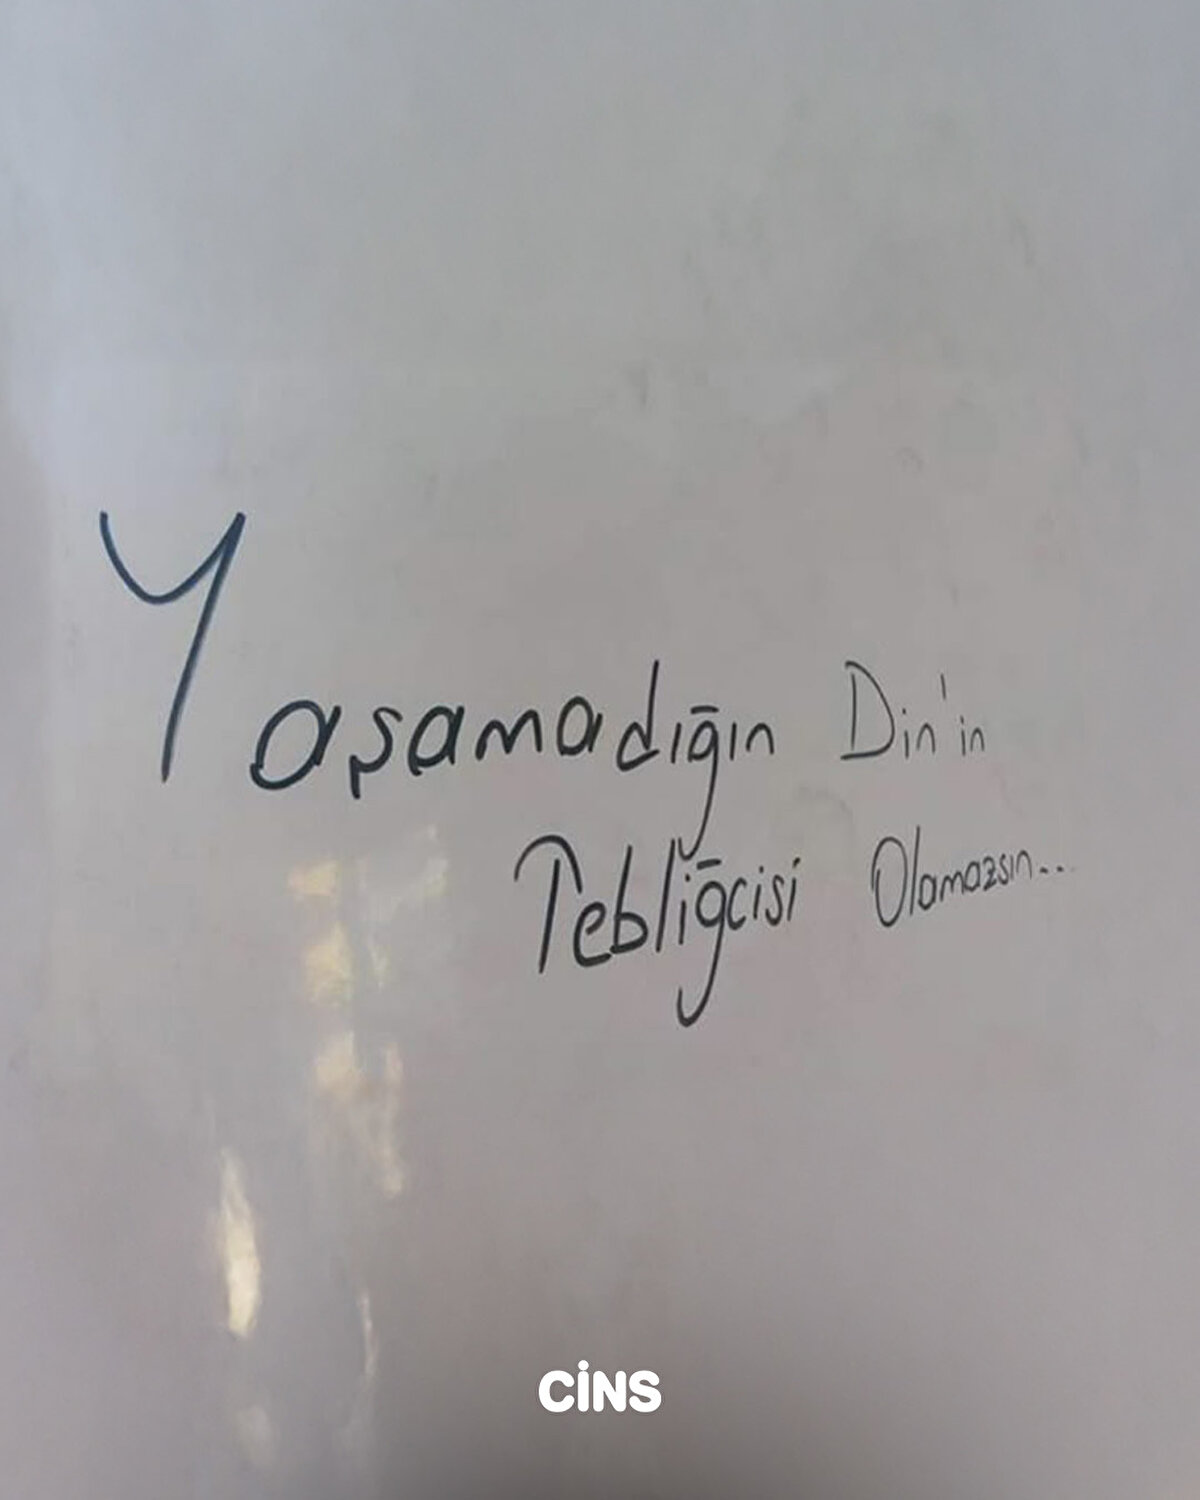 Yaşamadığın Din'in
Tebliğcisi Olamazsın...
CİNS